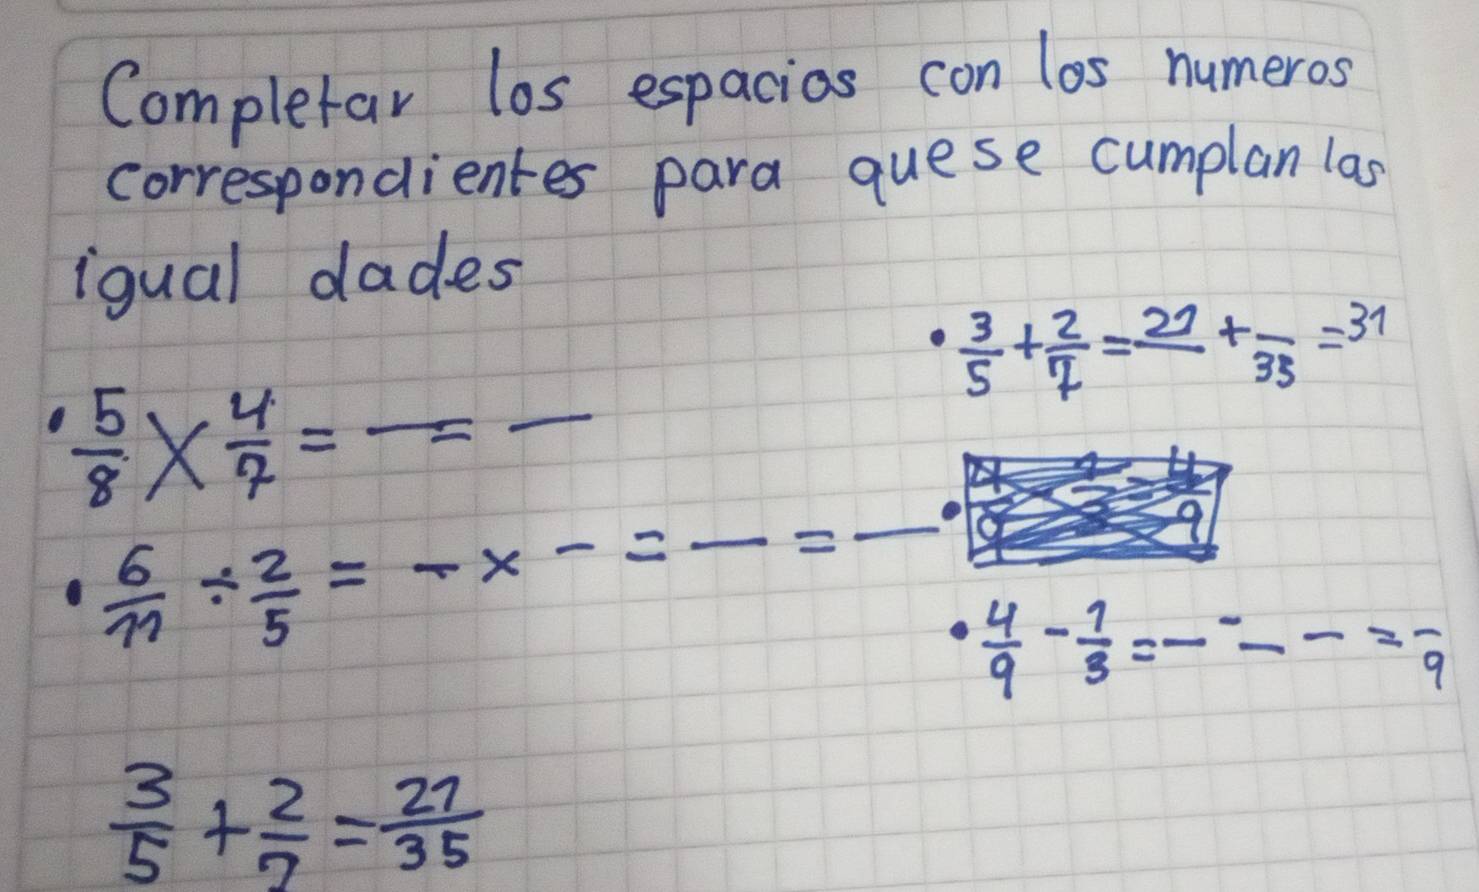 Completar los espacios con los numeros
correspondientes para quese cumplan las
igual dades
• 3/5 + 2/7 = 21/__ + __/35 = 31
• 5/8 X 4/7 = — = —
• 6/11 ÷ 2/5 = — x — = — = —
• 4/9 - 1/3 = — - — - = —/9
3/5 + 2/7 = 21/35